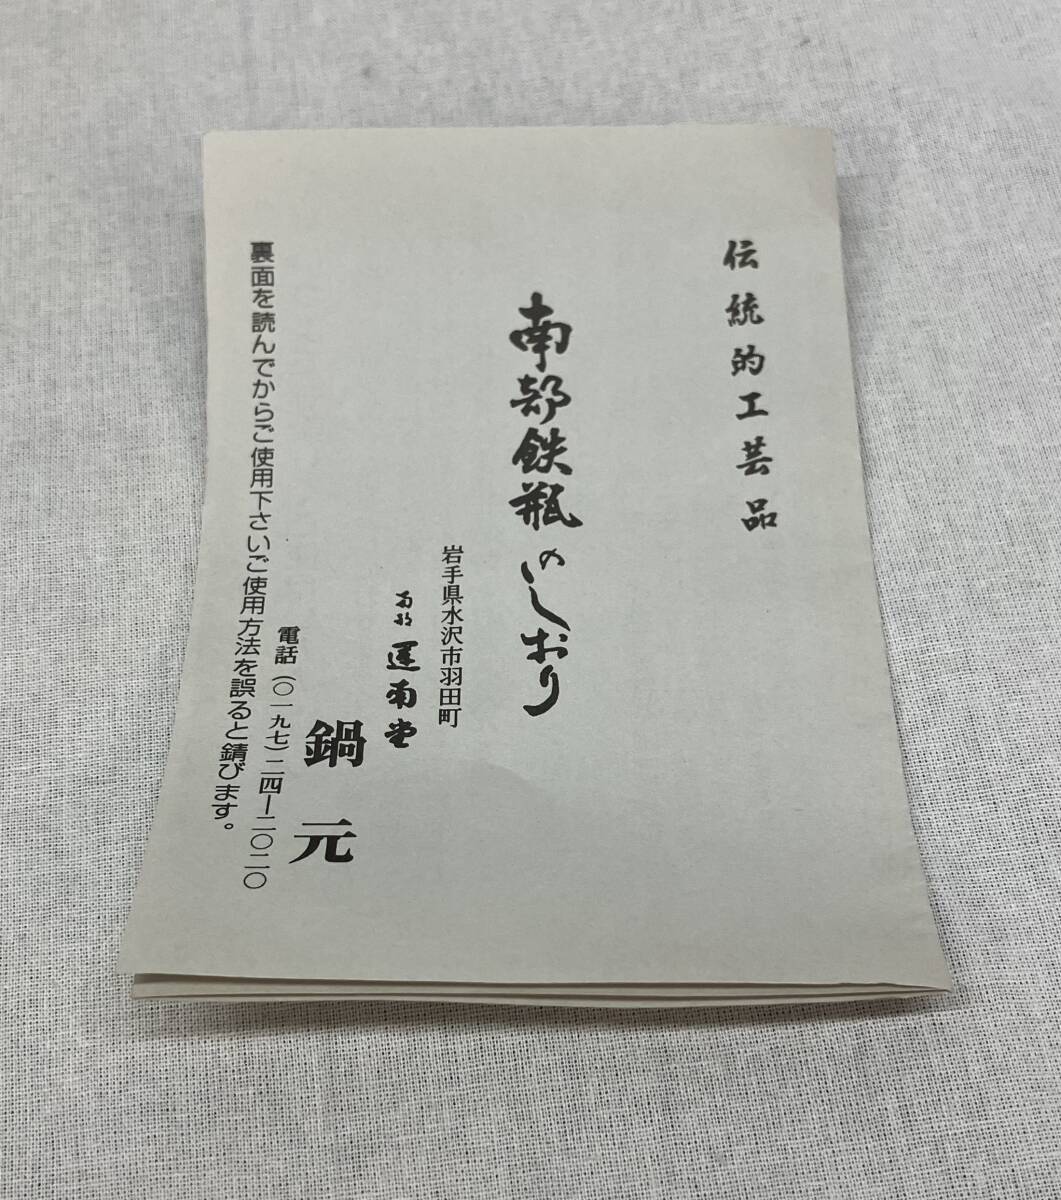 伝統的工芸品
南部鉄瓶のしおり
岩手県水沢市羽田町
南部
鍋元
電話(〇一九七)二四ー二〇二〇
裏面を読んでからご使用下さいご使用方法を誤ると錆びます。